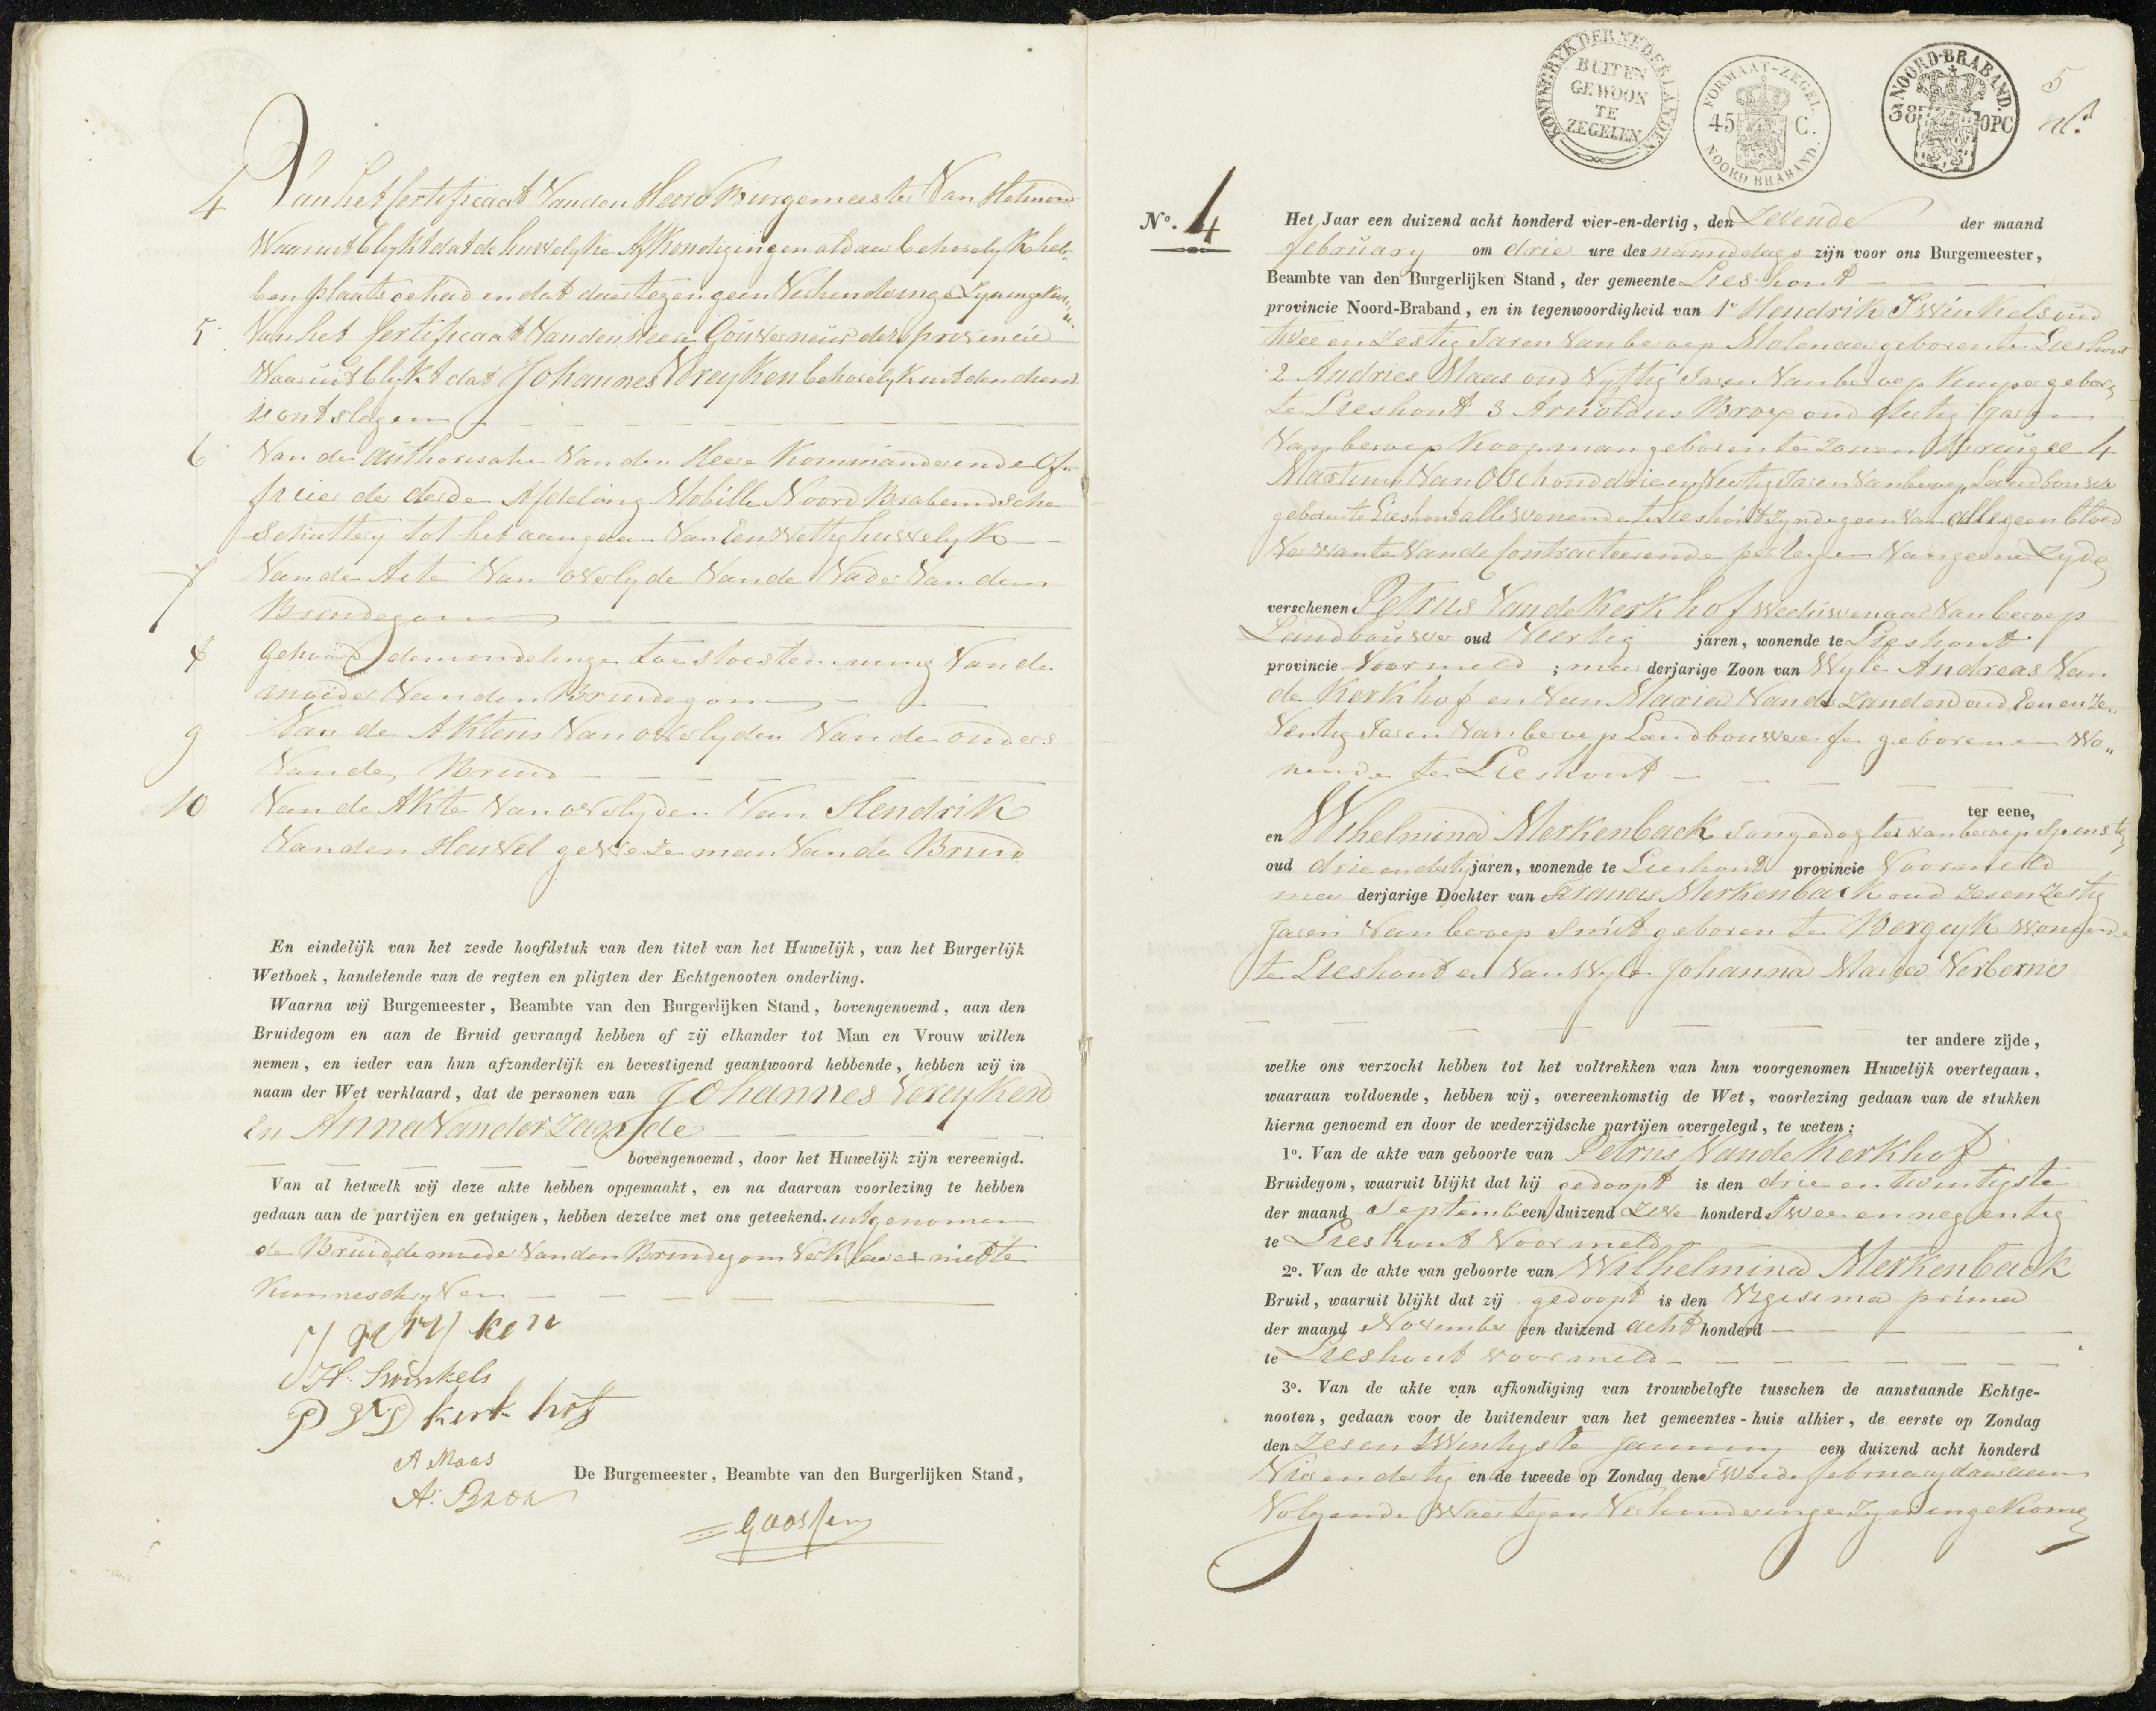 4 Van het Certificaat Van den Heere Burgemeester Van Helmond
Waar uit blykt dat de huwelyke Afkondigingen aldaar behoorlyk heb„
ben plaats gehad en dat daar tegen geen Verhinderinge Zyn ingekom„
5 Van het Certificaat Van den Heere Gouverneur der provincie
Waar uit blykt dat Johannes Vereyken behorelyk uit den dienst
is ontslagen
6 Van de authorisatie Van den Heere Kommanderende Of„
ficier der derde Afdeling Mobille Noord Brabandsche
Schuttery tot het aangaan Van Een Wettig huwelyk
7 Van de Acte Van overlyde Van de Vader Van den
Bruidegom
8 Gehoord de mondelinge toestoestemming Van de
moeder Van den Bruidegom
9 Van de Aktens Van overlyden Van de ouders
Van de Bruid
10 Van de Akte Van overlyden Van Hendrik
Van den Heuvel geweze man Van de Bruid
En eindelijk van het zesde hoofdstuk van den titel van het Huwelijk, van het Burgerlijk
Wetboek, handelende van de regten en pligten der Echtgenooten onderling.
Waarna wij Burgemeester, Beambte van den Burgerlijken Stand, bovengenoemd, aan den
Bruidegom en aan de Bruid gevraagd hebben of zij elkander tot Man en Vrouw willen
nemen, en ieder van hun afzonderlijk en bevestigend geantwoord hebbende, hebben wij in
naam der Wet verklaard, dat de personen van Johannes Vereyken
En Anna Van der Zande
bovengenoemd, door het Huwelijk zijn vereenigd.
Van al hetwelk wij deze akte hebben opgemaakt, en na daarvan voorlezing te hebben
gedaan aan de partijen en getuigen, hebben dezelve met ons geteekend. uitgenomen
de Bruid, de moeder Van den Bruidegom Verklaren niet te
Kunne schryven
H. Swinkels
kerk hof
A Maas
A. Brox
De Burgemeester, Beambte van den Burgerlijken Stand,
Goossens
KONINGRYK DER NEDERLANDEN
BUITEN
GEWOON
TE
ZEGELEN
FORMAAT-ZEGEL
45 C.
NOORD BRABAND.
NOORD-BRABAND.
38 OPC
5
No. 4
Het Jaar een duizend acht honderd vier-en-dertig, den Zevende der maand
february om drie ure des namiddags zijn voor ons Burgemeester,
Beambte van den Burgerlijken Stand, der gemeente Lieshout
provincie Noord-Braband, en in tegenwoordigheid van 1e Hendrik Swinkels oud
twee en Zestig Jaren Van beroep Molenaar geboren te Lieshout
2 Andries Maas oud Vyftig Jaren Van beroep Kuyper gebore
te Lieshout 3 Arnoldus Brox oud dertig Jaren
Van beroep Koopman geboren te Zon en Breugel 4
Martinus Van Osch oud drie en Veertig Jaren Van beroep Landbouwer
geboren te Lieshout alle wonende te Lieshout Zynde geen van alle geen bloed
Verwante Van de Contracteerende partyen Van geene Zyde
verschenen Petrus Van de Kerkhof weduwenaar Van beroep
Landbouwer oud Veertig jaren, wonende te Lieshout
provincie Voormeld ; meer derjarige Zoon van Wyle Andreas Van
de Kerkhof en Van Maria Van der Zanden oud Een en Ze„
Ventig Jaren Van beroep Landbouweresse geboren en Wo„
nende te Lieshout
ter eene,
en Wilhelmina Merkenback Jongedogter van beroep Spinster
oud drie en dertig jaren, wonende te Lieshout provincie Voormeld
meer derjarige Dochter van Francis Merkenback oud Zes en Zestig
Jaren Van beroep Smit geboren te Bergeyk wonende
te Lieshout en Van Wyle Johanna Maria Verberne
ter andere zijde,
welke ons verzocht hebben tot het voltrekken van hun voorgenomen Huwelijk overtegaan,
waaraan voldoende, hebben wij, overeenkomstig de Wet, voorlezing gedaan van de stukken
hierna genoemd en door de wederzijdsche partijen overgelegd, te weten:
1o. Van de akte van geboorte van Petrus Van de Kerkhof
Bruidegom, waaruit blijkt dat hij gedoopt is den drie en twintigste
der maand September een duizend Zeve honderd Twee en negentig
te Lieshout Voormeld
2o. Van de akte van geboorte van Wilhelmina Merkenback
Bruid, waaruit blijkt dat zij gedoopt is den Vigesima prima
der maand November een duizend acht honderd
te Lieshout voormeld
3o. Van de akte van afkondiging van trouwbelofte tusschen de aanstaande Echtge-
nooten, gedaan voor de buitendeur van het gemeentes-huis alhier, de eerste op Zondag
den Zes en Twintigste January een duizend acht honderd
Vier en dertig en de tweede op Zondag den Tweede february daar aan
Volgende Waar tegen Verhinderinge Zyn ingekome